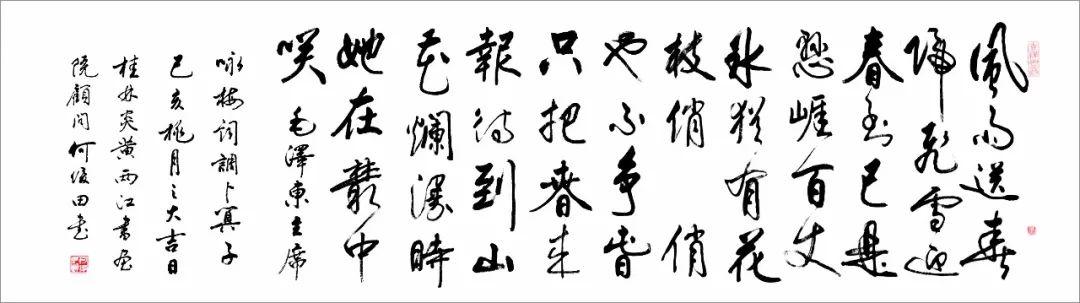 風雨送春
歸飛雪迎
春到已是
悬崖百丈
冰猶有花
枝俏 俏
也不争春
只把春来
報待到山
花爛漫時
她在叢中
咲 毛澤東主席
咏梅詞調卜算子
己亥桃月之大吉日
桂林炎黄两江書画
院顧問何俊田書